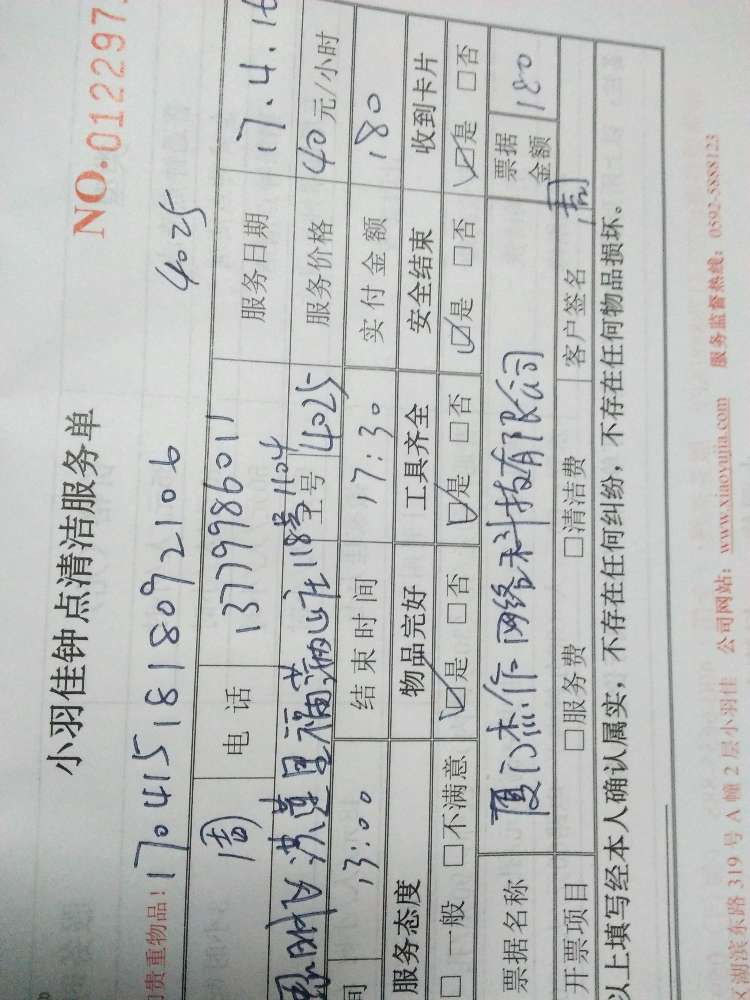 小羽佳钟点清洁服务单
NO.0122297
贵重物品！ 170415181809 2106 4025
周 电话 13779986011 服务日期 17.4.16
莲里福满山庄118号1104 工号 4025 服务价格 40元/小时
间 13:00 结束时间 17:30 实付金额 180
服务态度 物品完好 工具齐全 安全结束 收到卡片
□一般 □不满意 ☑是 □否 ☑是 □否 ☑是 □否 ☑是 □否
票据名称 厦门杰作网络科技有限公司 票据金额 180
开票项目 □服务费 □清洁费 客户签名 周
以上填写经本人确认属实，不存在任何纠纷，不存在任何物品损坏。
湖滨东路 319 号 A 幢 2 层小羽佳 公司网站：www.xiaoyujia.com 服务监督热线：0592-5888123